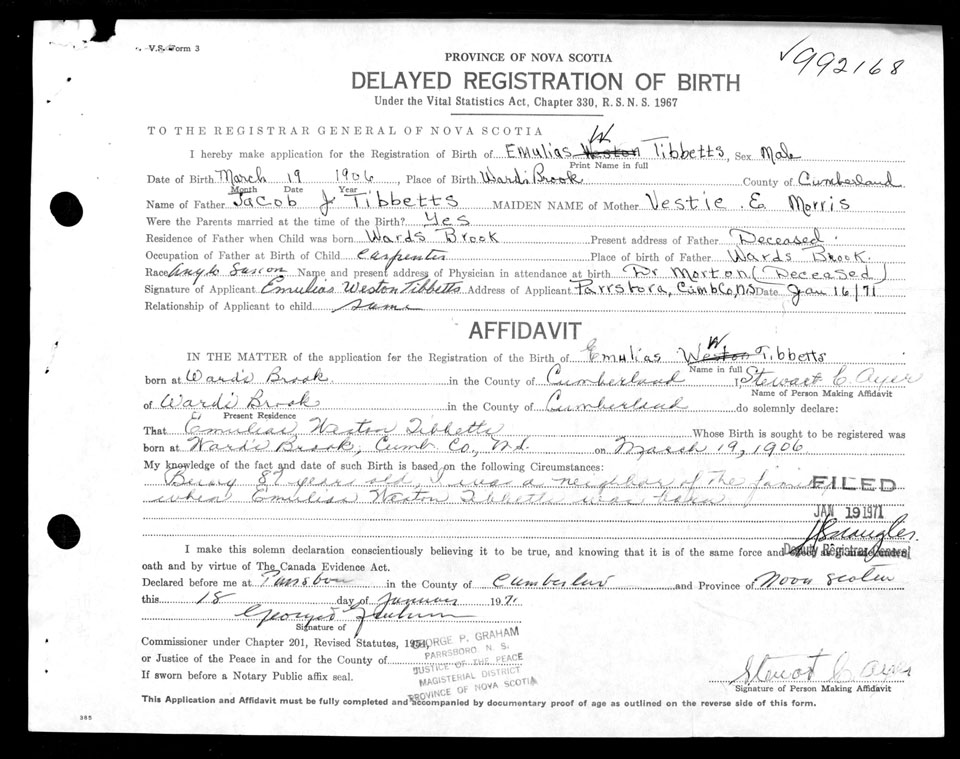 V.S. Form 3
√992168
PROVINCE OF NOVA SCOTIA
DELAYED REGISTRATION OF BIRTH
Under the Vital Statistics Act, Chapter 330, R.S.N.S. 1967
TO THE REGISTRAR GENERAL OF NOVA SCOTIA
W
I hereby make application for the Registration of Birth of Emulias Weston Tibbetts, Sex Male
Print Name in full
Date of Birth March 19 1906, Place of Birth Wards Brook County of Cumberland
Month Date Year
Name of Father Jacob J Tibbetts MAIDEN NAME of Mother Vestie E Morris
Were the Parents married at the time of the Birth? Yes
Residence of Father when Child was born Wards Brook Present address of Father Deceased
Occupation of Father at Birth of Child Carpenter Place of birth of Father Wards Brook.
Race Anglo Saxson Name and present address of Physician in attendance at birth Dr Morton (Deceased)
Signature of Applicant Emulias Weston Tibbetts Address of Applicant Parrsboro, Cumb Co, NS Date Jan 16/71
Relationship of Applicant to child same
AFFIDAVIT
W
IN THE MATTER of the application for the Registration of the Birth of Emulias Weston Tibbetts
Name in full
born at Ward's Brook in the County of Cumberland I Stewart C. Ayer
Name of Person Making Affidavit
of Ward's Brook in the County of Cumberland do solemnly declare:
Present Residence
That Emulias Weston Tibbetts Whose Birth is sought to be registered was
born at Ward's Brook, Cumb Co., N.S. on March 19, 1906
My knowledge of the fact and date of such Birth is based on the following Circumstances:
Being 87 years old, I was a neighbor of the family
when Emulias Weston Tibbetts was born
FILED
JAN 19 1971
Deputy Registrar General
I make this solemn declaration conscientiously believing it to be true, and knowing that it is of the same force and effect as if made under
oath and by virtue of The Canada Evidence Act.
Declared before me at Parrsboro in the County of Cumberland and Province of Nova Scotia
this 18 day of January 1971
George P Graham
Signature of
Commissioner under Chapter 201, Revised Statutes, 1954,
or Justice of the Peace in and for the County of
If sworn before a Notary Public affix seal.
GEORGE P. GRAHAM
PARRSBORO, N. S.
JUSTICE OF THE PEACE
MAGISTERIAL DISTRICT
PROVINCE OF NOVA SCOTIA
Stewart C Ayer
Signature of Person Making Affidavit
This Application and Affidavit must be fully completed and accompanied by documentary proof of age as outlined on the reverse side of this form.
385